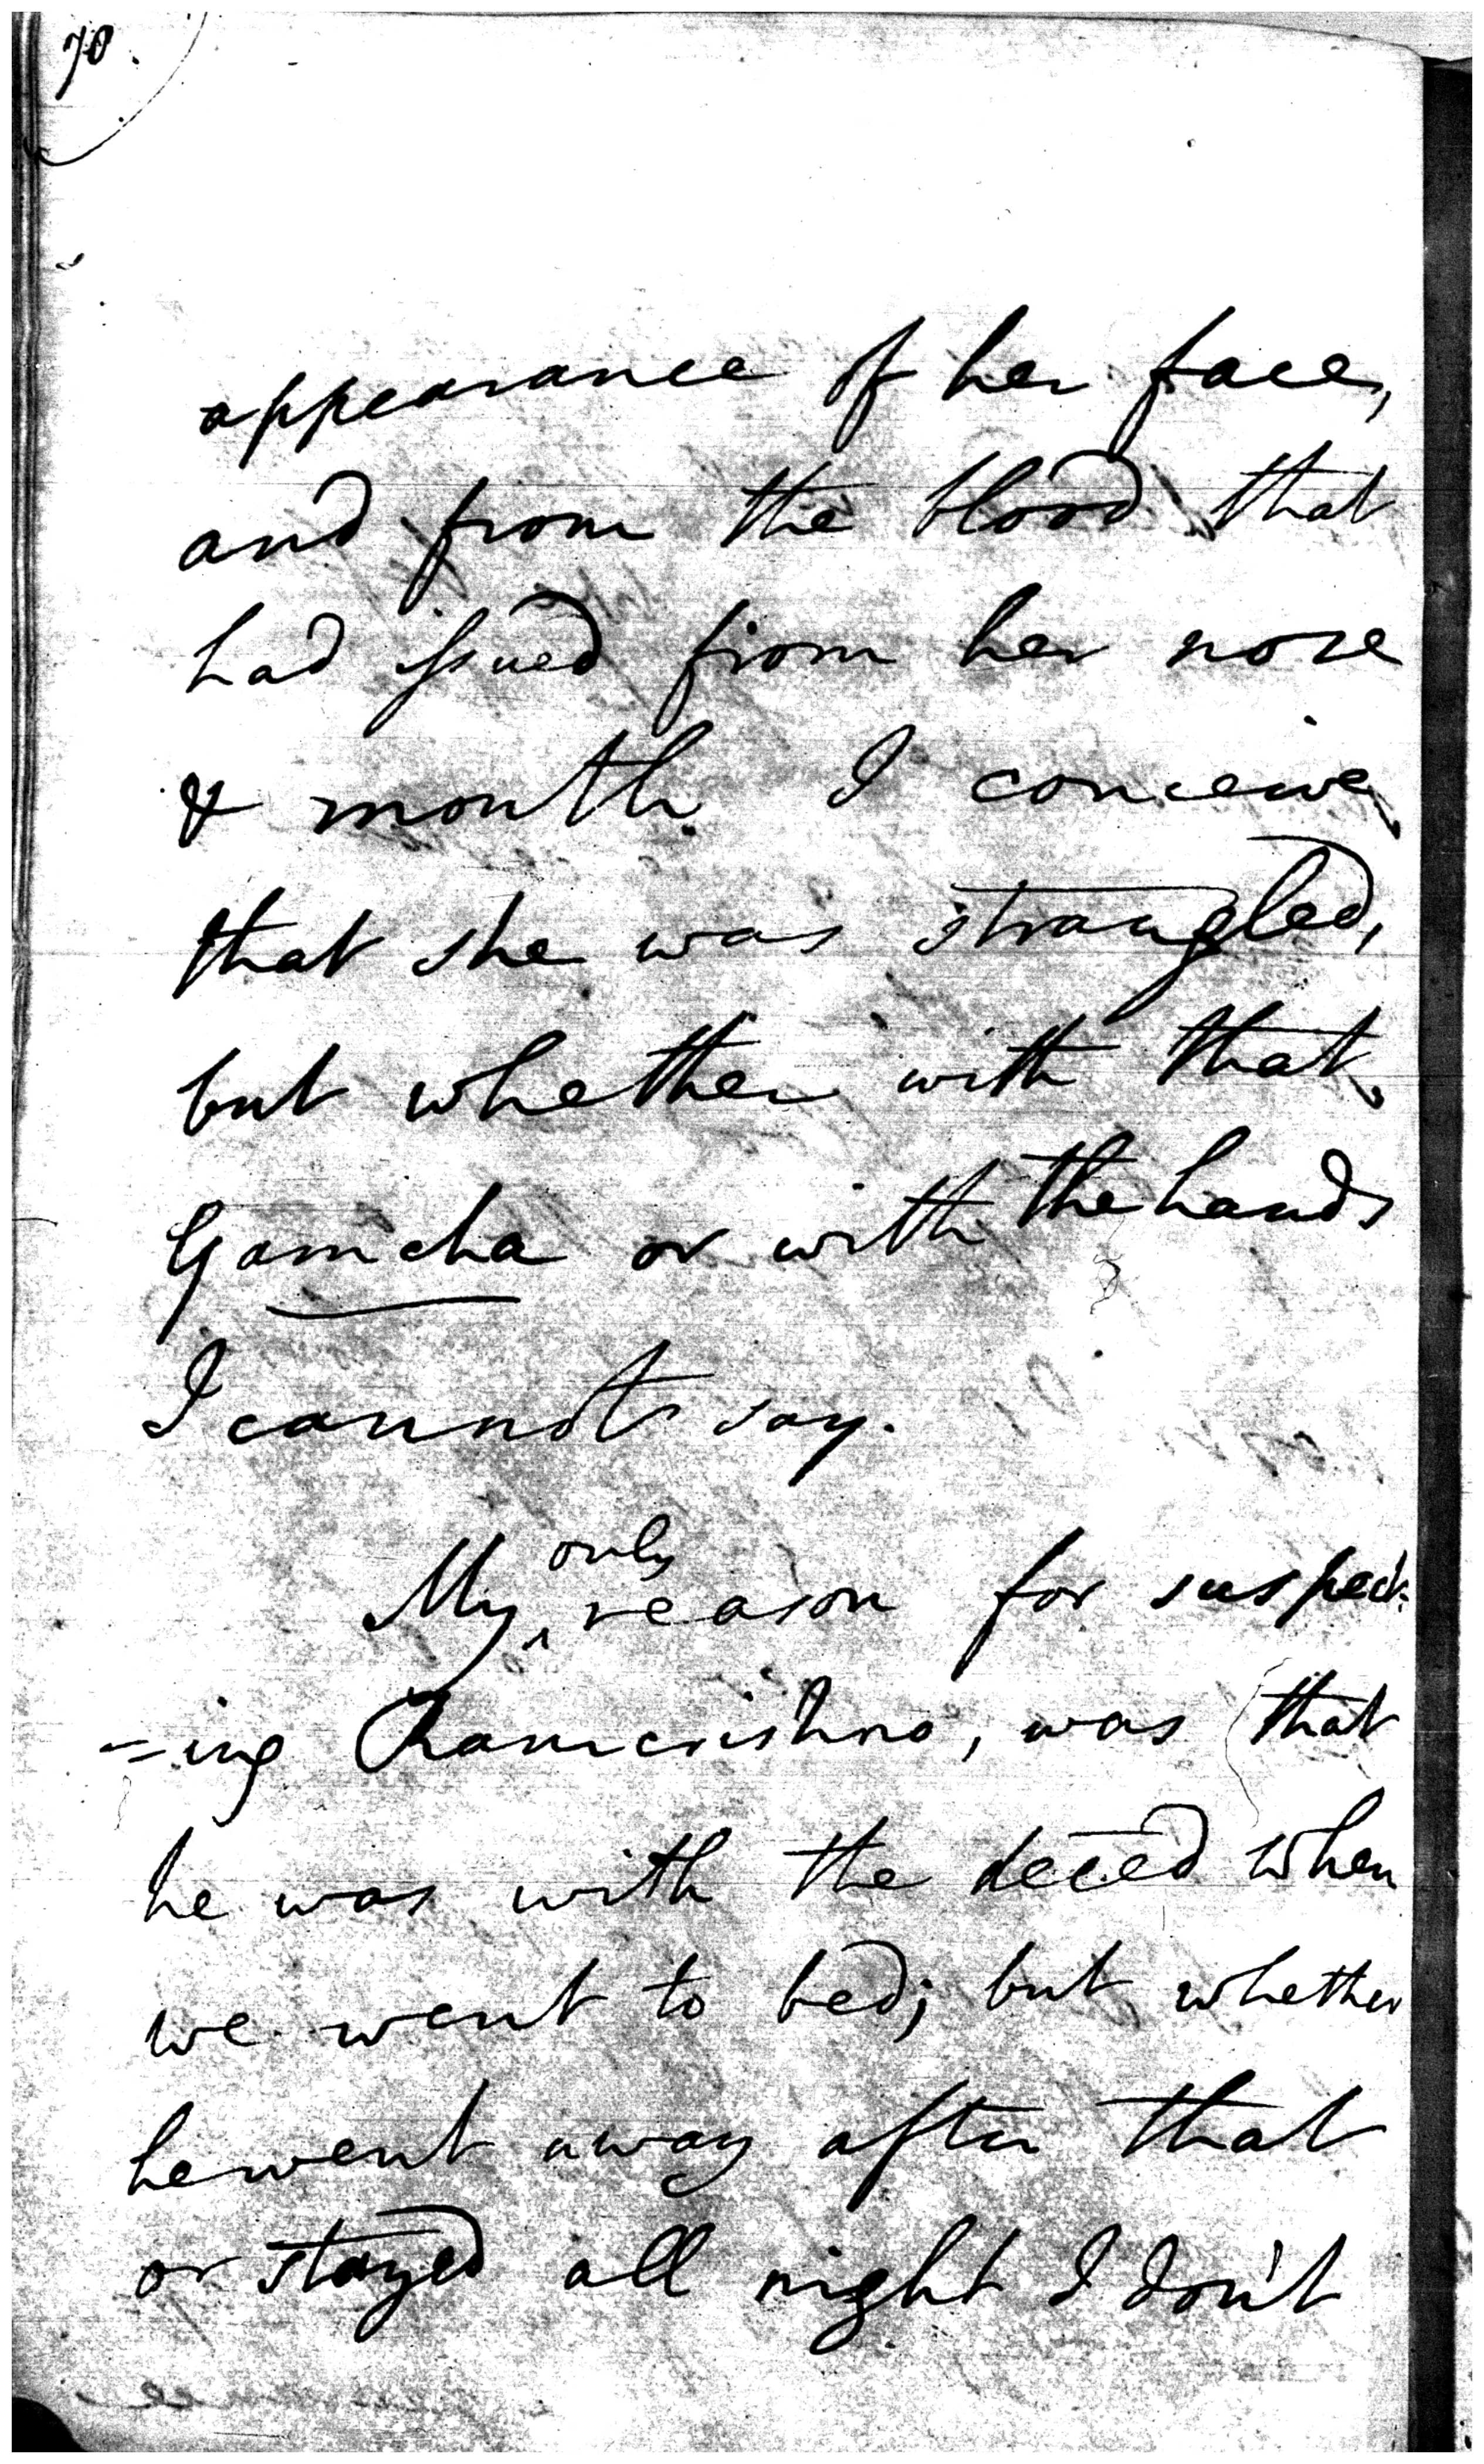 70.
appearance of her face,
and from the blood that
had issued from her nose
& mouth I conceive
that she was strangled,
but whether with that
Gamcha or with the hands
I cannot say.
My only reason for suspect-
=ing Ramcrishno, was that
he was with the deced when
we went to bed; but whether
he went away after that
or stayed all night I don't